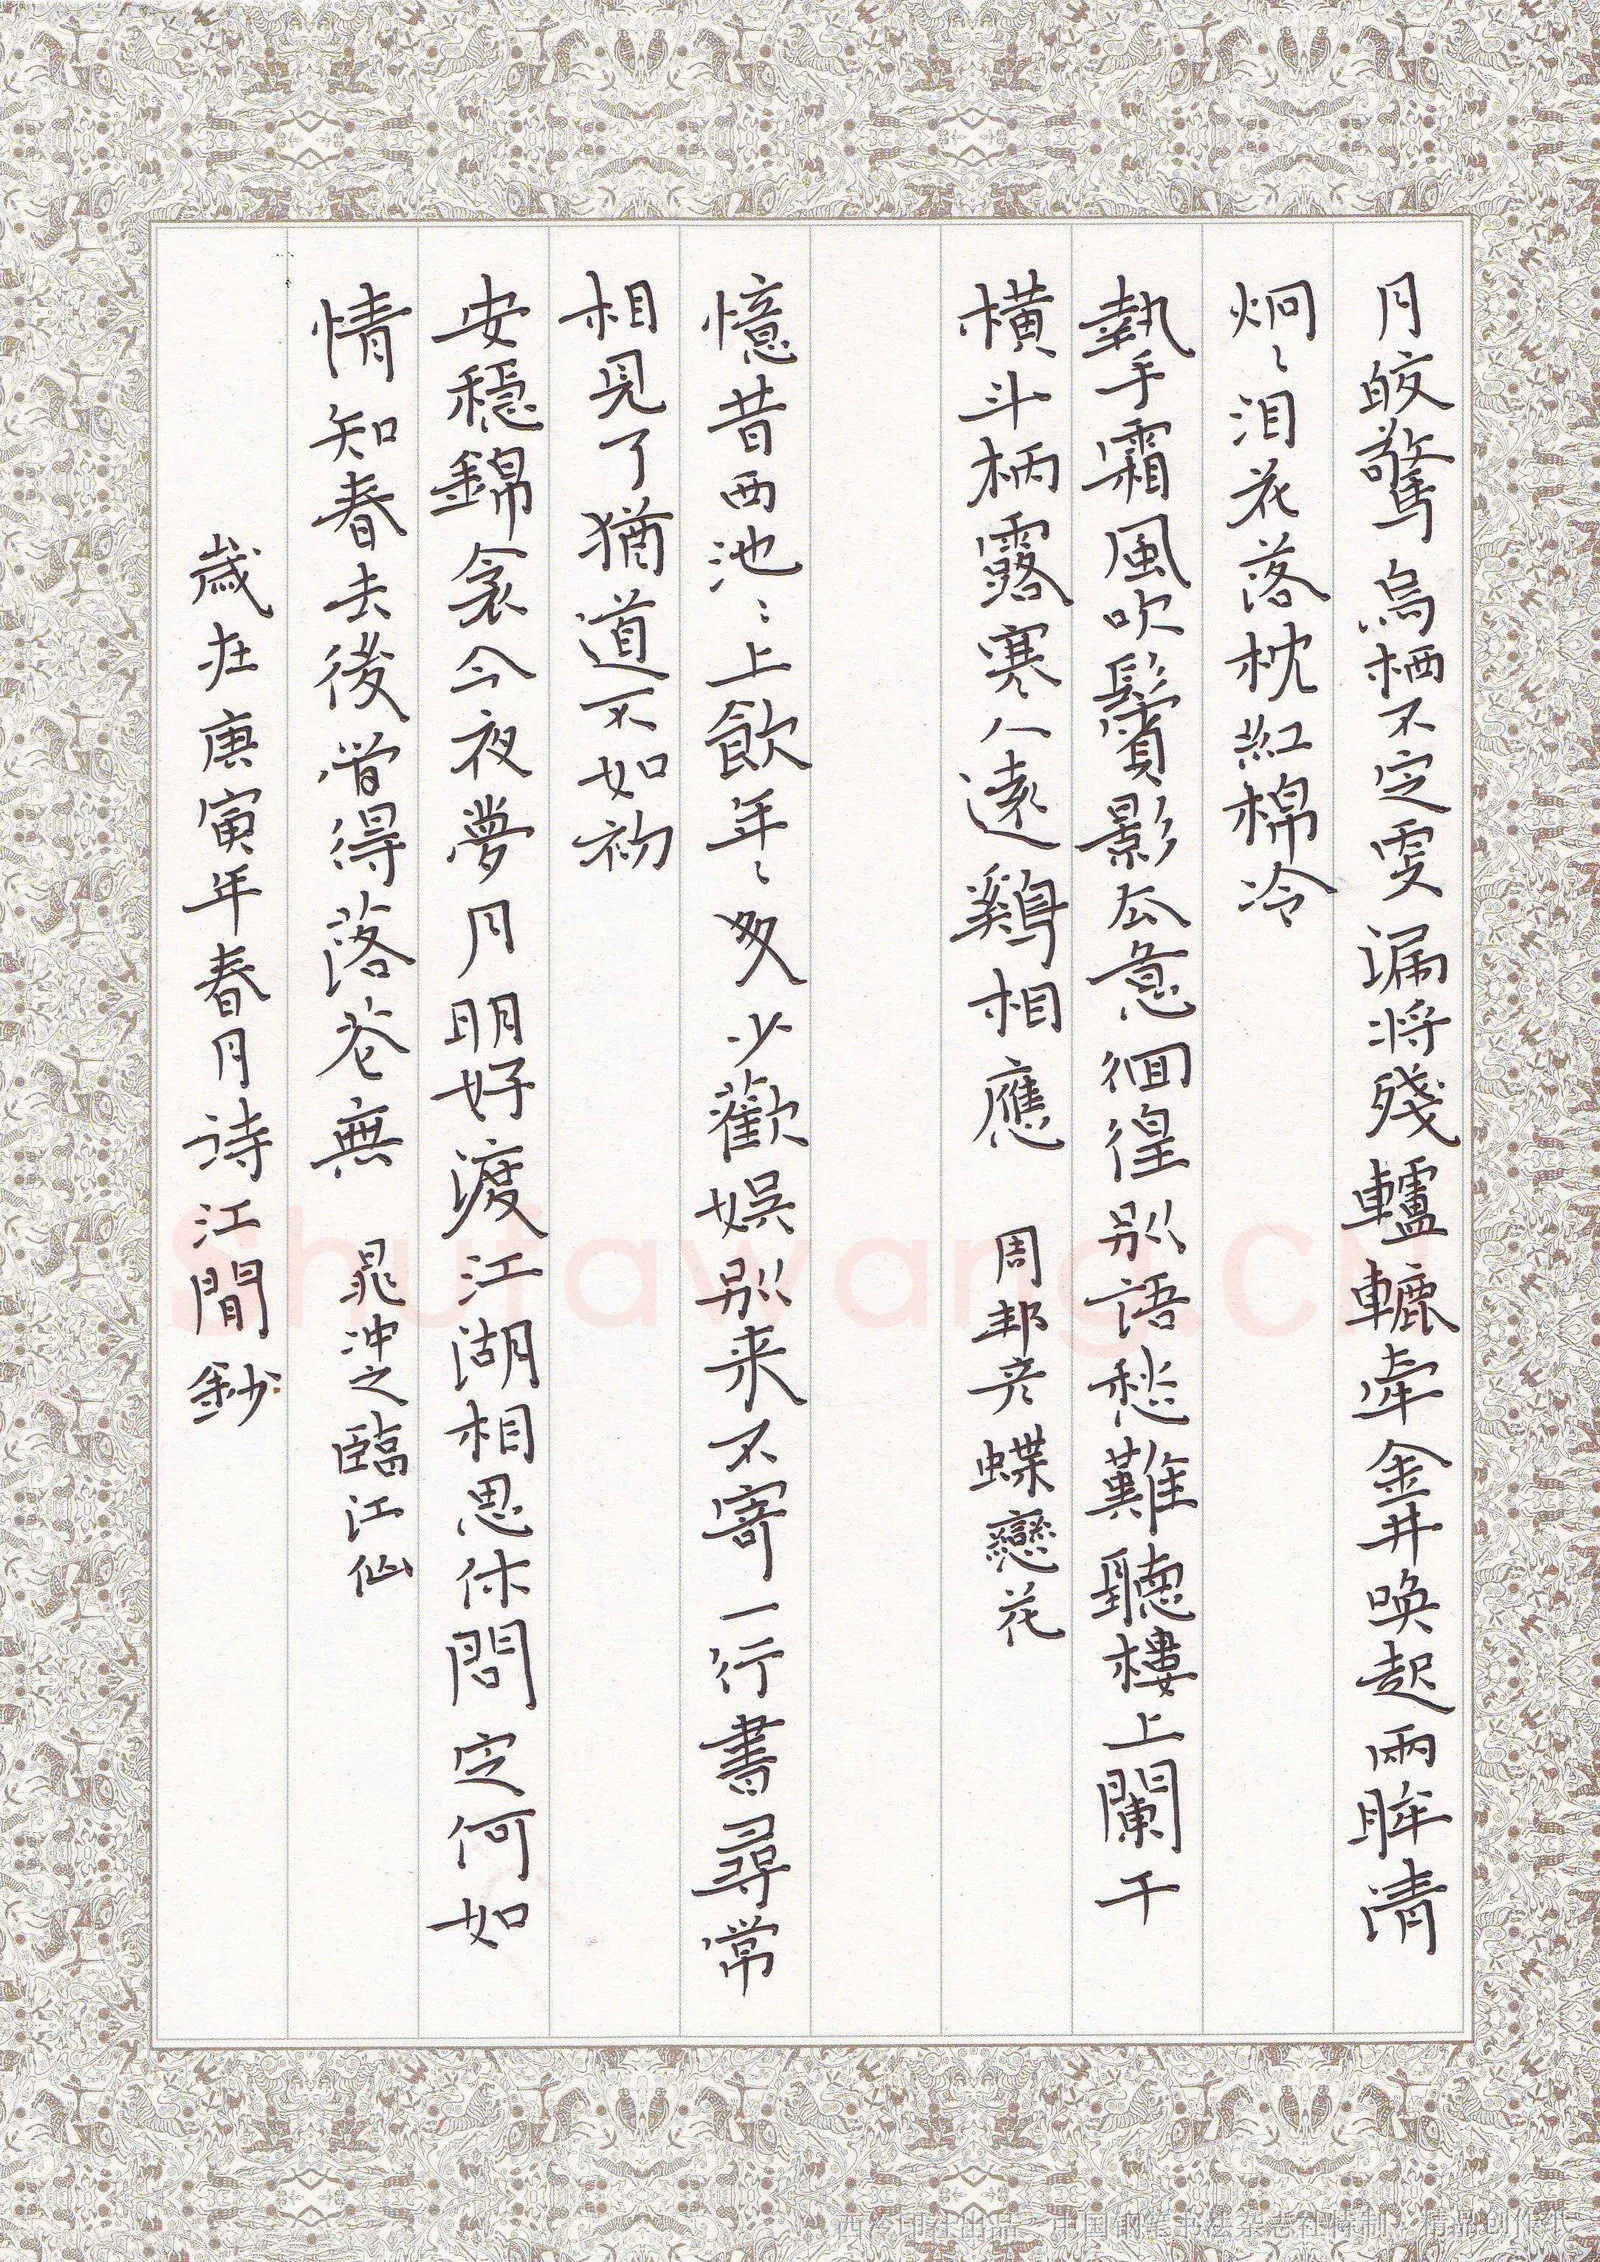 月皎驚烏栖不定更漏將殘轆轤牽金井喚起兩眸清
炯〻泪花落枕紅棉冷
執手霜風吹鬢影去意徊徨別語愁難聽樓上闌干
橫斗柄露寒人遠鷄相應 周邦彦蝶戀花
憶昔西池〻上飲年〻多少歡娛別来不寄一行書尋常
相見了猶道不如初
安穩錦衾今夜夢月明好渡江湖相思休問定何如
情知春去後管得落花無 晁沖之臨江仙
歲在庚寅年春月诗江閒鈔
Shufawang.CN
西泠印社出品 中国钢笔书法杂志社特制 精品创作纸